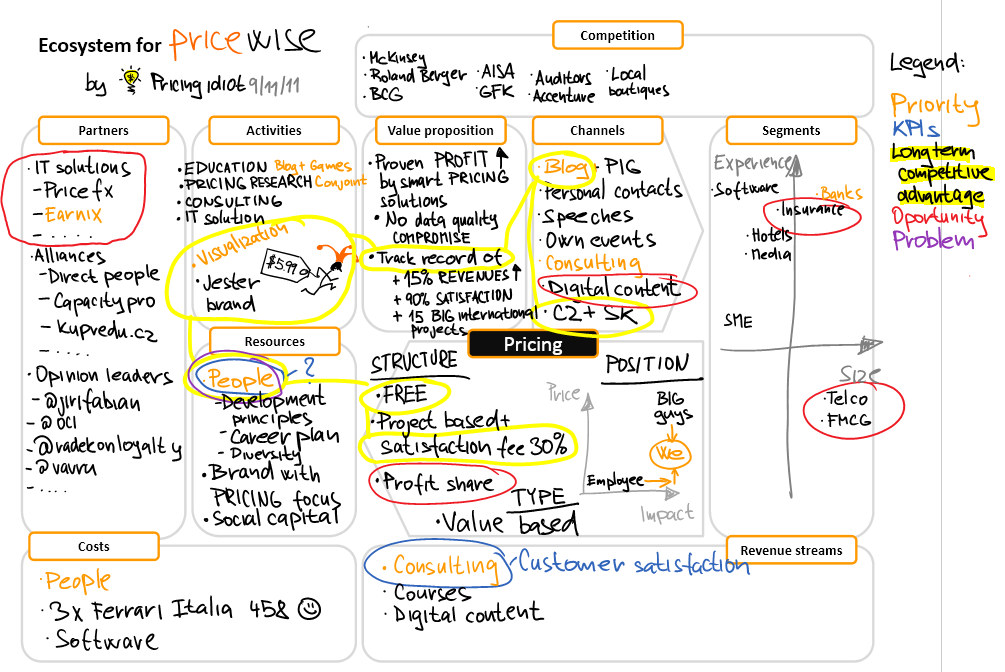 Ecosystem for pricewise
by Pricing idiot 9/11/11
Competition
· McKinsey
· Roland Berger
· BCG
· AISA
· GFK
· Auditors
· Accenture
· Local
boutiques
Legend:
Priority
KPIs
Longterm
competitive
advantage
Oportunity
Problem
Partners
· IT solutions
- Price fx
- Earnix
- . . . . .
· Alliances
- Direct people
- Capacity pro
- Kupvedu.cz
- . . . .
· Opinion leaders
- @jirifabian
- @oci
- @radekonloyalty
- @vavru
- . . . .
Activities
· EDUCATION Blog + Games
· PRICING RESEARCH Conjoint
· CONSULTING
· IT solution
· Visualization
$5.99
· Jester
brand
Resources
· People - ?
- Development
principles
- Career plan
- Diversity
· Brand with
PRICING focus
· Social capital
Value proposition
· Proven PROFIT ↑
by smart PRICING
solutions
· No data quality
COMPROMISE
· Track record of
+ 15% REVENUES ↑
+ 90% SATISFACTION
+ 15 BIG international
projects
Channels
· Blog + PIG
· Personal contacts
· Speeches
· Own events
· Consulting
· Digital content
· CZ + SK
Pricing
STRUCTURE
· FREE
· Project based +
satisfaction fee 30%
· Profit share
TYPE
· Value based
POSITION
Price
BIG
guys
We
Employee
Impact
Segments
Experience
· Software
· Banks
· Insurance
· Hotels
· Media
SME
SIZE
· Telco
· FMCG
Costs
· People
· 3x Ferrari Italia 458 ☺
· Software
Revenue streams
· Consulting - Customer satisfaction
· Courses
· Digital content